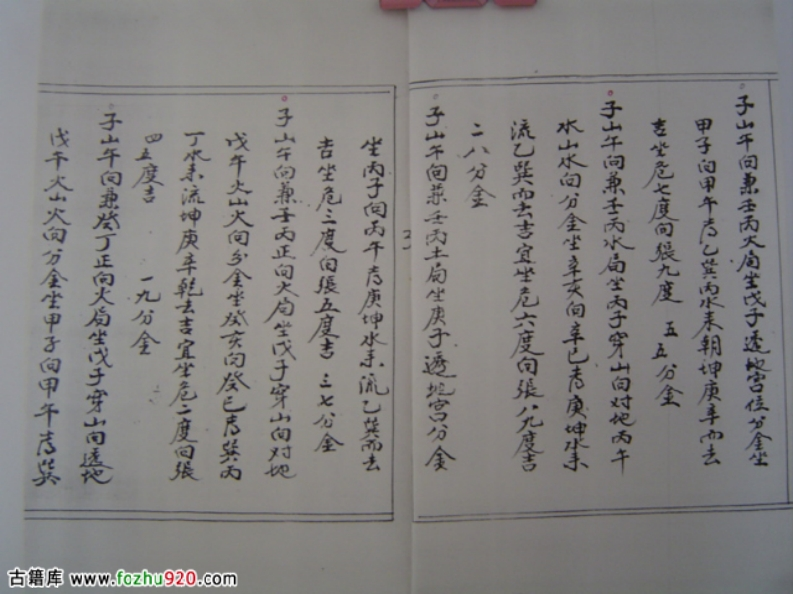 子山午向兼壬丙火局坐戊子透地宫位分金坐
甲子向甲午为乙巽丙水来朝坤庚辛而去
吉坐危七度向張九度 五五分金
子山午向兼壬丙水局坐丙子穿山向对地丙午
水山水向分金坐辛亥向辛巳为庚坤水来
流乙巽而去吉宜坐危六度向張八九度吉
二八分金
子山午向兼壬丙土局坐庚子透地宫分金
坐丙子向丙午为庚坤水来流乙巽而去
吉坐危三度向張五度吉 三七分金
子山午向兼壬丙正向火局坐戊子穿山向对地
戊午火山火向分金坐癸亥向癸巳为巽丙
丁水来流坤庚辛乾去吉宜坐危二度向張
四五度吉 一九分金
子山午向兼癸丁正向火局坐戊子穿山向透地
戊午火山火向分金坐甲子向甲午为巽
古籍库 www.fozhu920.com